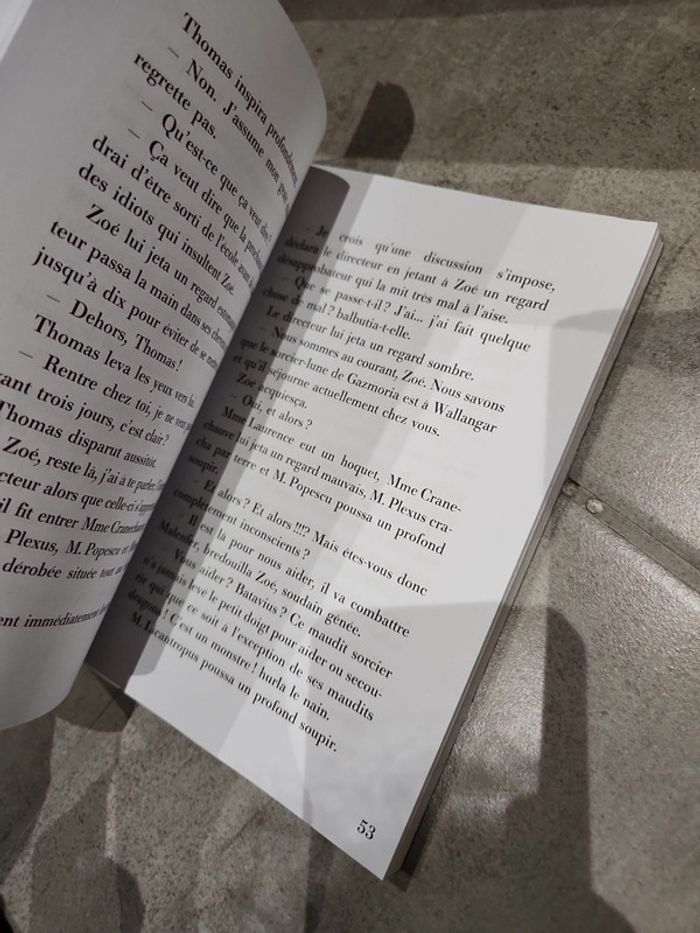 Thomas inspira profondément
– Non. J'assume mon geste,
regrette pas.
– Qu'est-ce que ça veut dire?
– Ça veut dire que la prochaine
drai d'être sorti de l'école avant
des idiots qui insultent Zoé.
Zoé lui jeta un regard
teur passa la main dans ses cheveux
jusqu'à dix pour éviter de se
– Dehors, Thomas!
Thomas leva les yeux vers lui.
– Rentre chez toi, je ne veux pas
tant trois jours, c'est clair?
Thomas disparut aussitôt.
Zoé, reste là, j'ai à te parler,
cteur alors que celle-ci
il fit entrer Mme Cranechauve
Plexus, M. Popescu et
dérobée située tout au
ent immédiatement
– Je crois qu'une discussion s'impose,
déclara le directeur en jetant à Zoé un regard
désapprobateur qui la mit très mal à l'aise.
– Que se passe-t-il ? J'ai... j'ai fait quelque
chose de mal ? balbutia-t-elle.
Le directeur lui jeta un regard sombre.
– Nous sommes au courant, Zoé. Nous savons
que le sorcier-lune de Gazmoria est à Wallangar
et qu'il séjourne actuellement chez vous.
Zoé acquiesça.
– Oui, et alors ?
Mme Laurence eut un hoquet, Mme Crane-
chauve lui jeta un regard mauvais, M. Plexus cra-
cha par terre et M. Popescu poussa un profond
soupir.
– Et alors ? Et alors !!!? Mais êtes-vous donc
complètement inconscients ?
– Il est là pour nous aider, il va combattre
Malenfer, bredouilla Zoé, soudain gênée.
– Vous aider ? Batavius ? Ce maudit sorcier
n'a jamais levé le petit doigt pour aider ou secou-
rir qui que ce soit à l'exception de ses maudits
dragons ! C'est un monstre ! hurla le nain.
M. Lycantropus poussa un profond soupir.
53